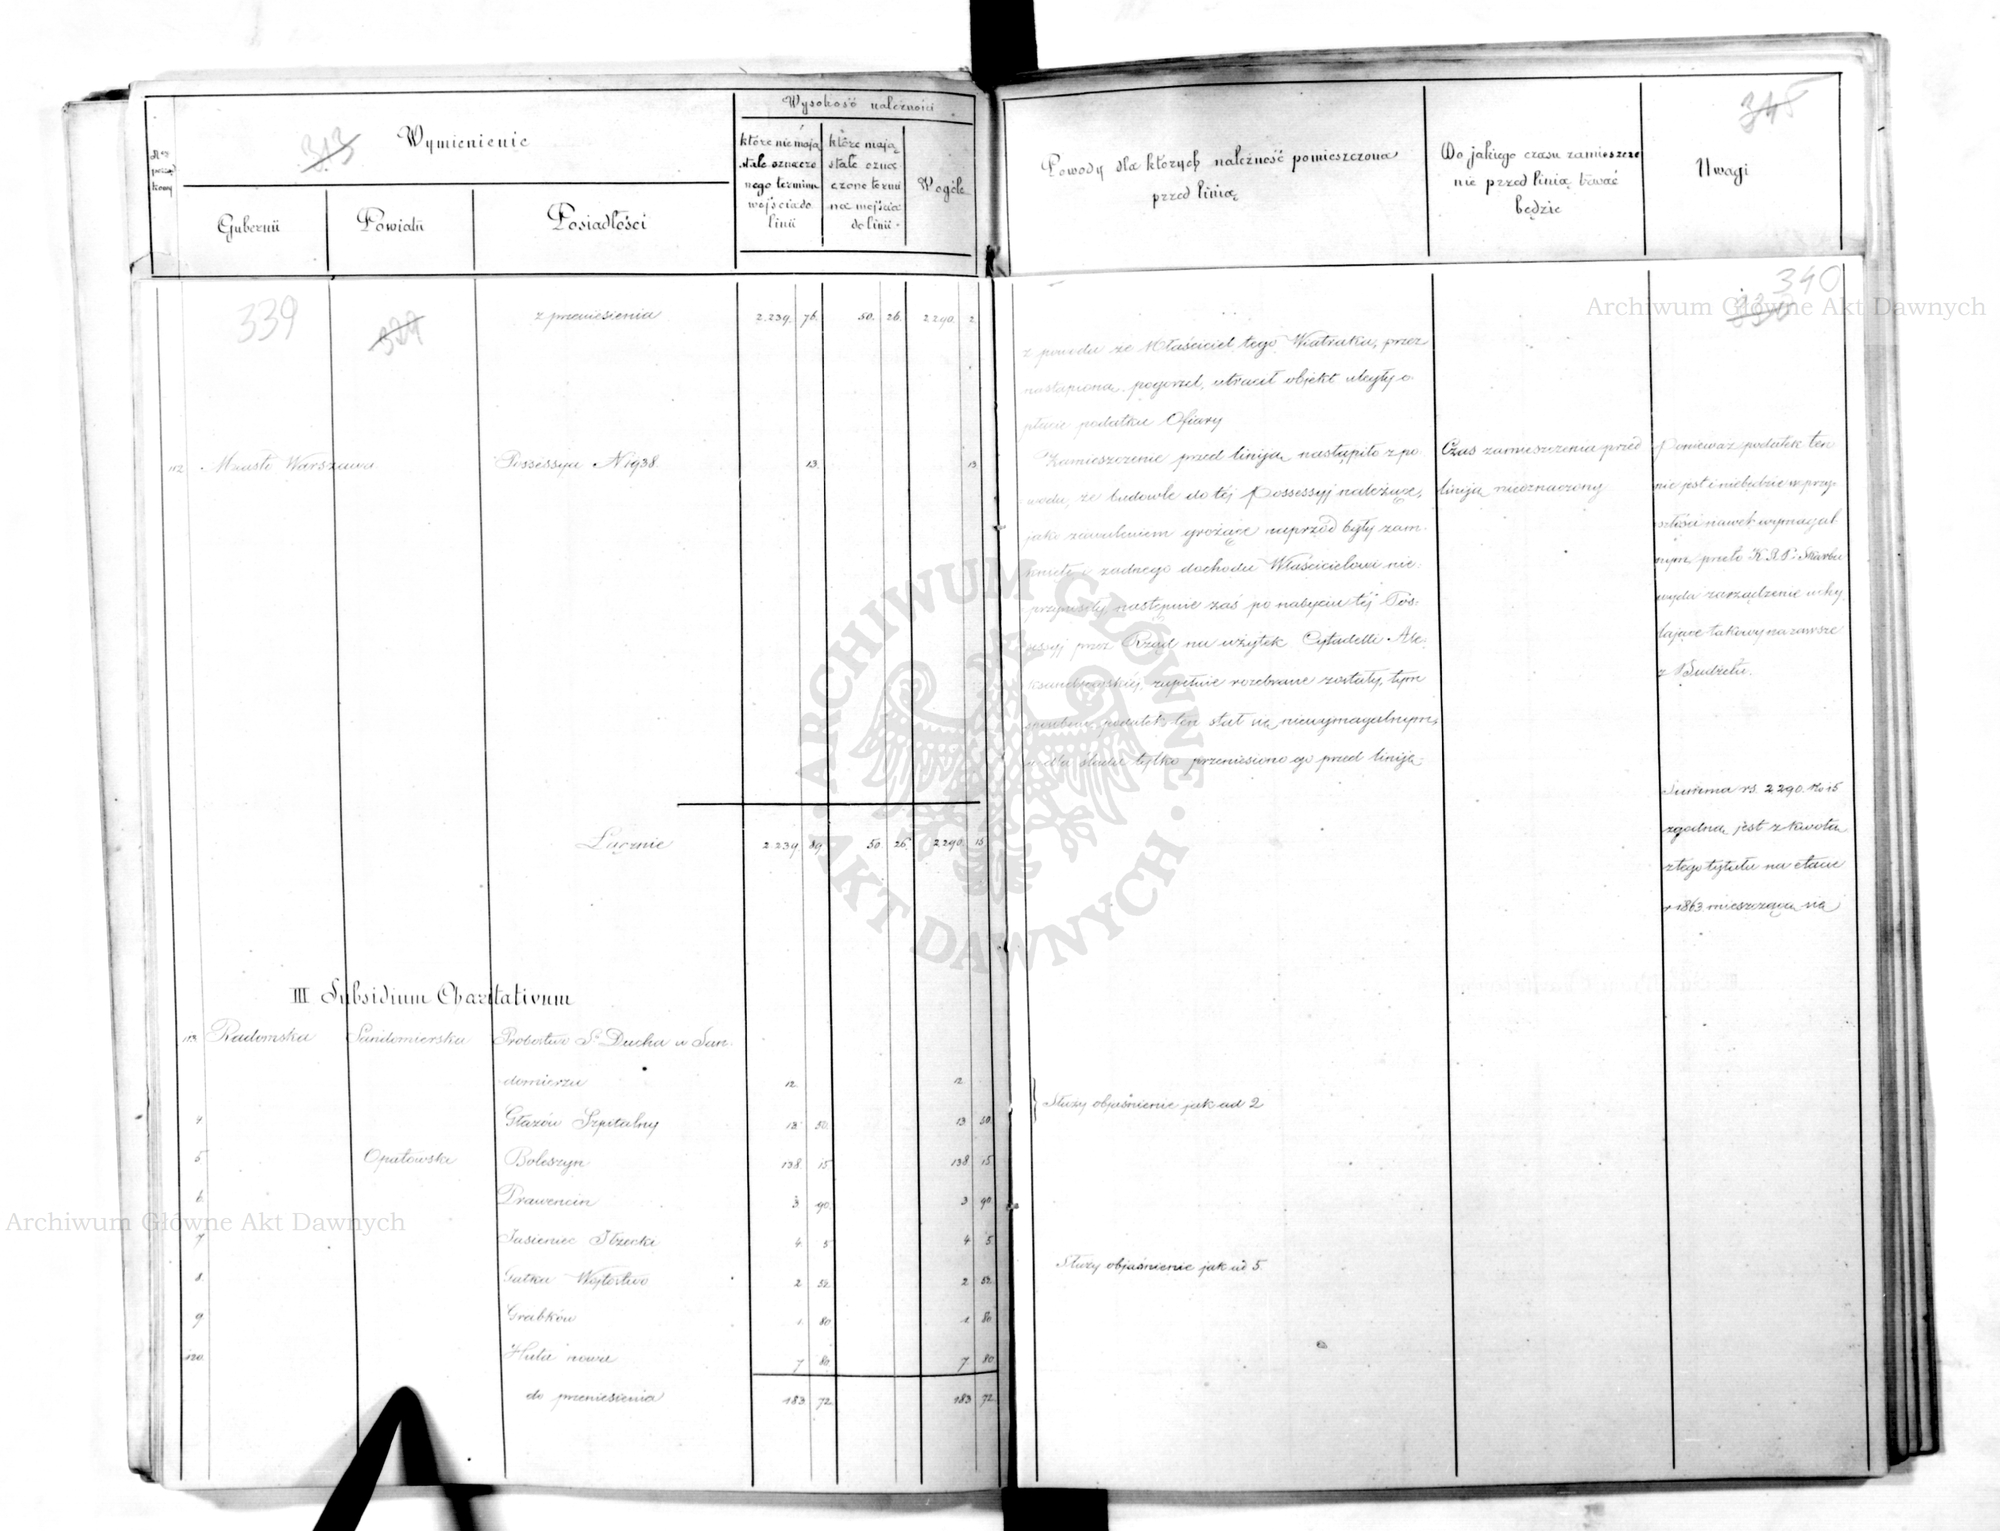 313
Wymienienie
Wysokość należności
Gubernii
Powiatu
Posiadłości
które nie mają
stale oznaczo
nego terminu
wejścia do
linii
które mają
stale ozna
czone termi
na wejścia
do linii.
Wogóle
345
Powody dla których należność pomieszczona
przed linią
Do jakiego czasu zamieszcze
nie przed linią trwać
będzie
Uwagi
339
329
z przeniesienia 2.239. 76. 50. 26. 2290. 2
112 Miasto Warszawa Possessya N 1938. 13. 13
Łącznie 2.239. 89 50. 26. 2.290. 15
III Subsidium Charitativum
113 Radomska Sandomierska Probostwo Sº Ducha w San-
domierzu 12. 12.
4 Głazów Szpitalny 13 50. 13 50.
5 Opatowski Boleszyn 138. 15 138 15
6 3. 90. 3 90.
7 Jasieniec Iłżecki 4. 5 4 5
8. Gutku Wójtostwo 2 52. 2 52.
9 Grabków 1. 80 1 80
120. Huta nowa 7 80. 7 80
do przeniesienia 183 72 183 72
340
330
z powodu że Właściciel tego Wiatraka, przez
nastąpioną pogorzel, utracił objekt uległy o-
płacie podatku Ofiary
Zamieszczenie przed liniją nastąpiło z po
wodu, że budowle do téj Possessyj należące,
jako zawaleniem grożące naprzód były zam-
knięte i żadnego dochodu Właścicielowi nie-
przynosiły, następnie zaś po nabyciu téj Pos-
sessyj przez Rząd na użytek Cytadelli Ale-
ksandryjskiéj, zupełnie rozebrane zostały, tym
sposobem podatek ten stał się niewymagalnym,
i dla śladu tylko przeniesiono go przed liniją
Czas zamieszczenia przed
liniją nieoznaczony
Ponieważ podatek ten
nie jest i niebędzie w przy-
szłości nawet wymagal-
nym, przeto K.R.P. i Skarbu
wyda zarządzenie uchy-
lające takowy na zawsze
z Budżetu.
Summa rs. 2,290. ko 15
zgodną jest z kwotą
z tego tytułu na etacie
r 1863 mieszczącą się
Służy objaśnienie jak ad 2
Służy objaśnienie jak ad 5.
Archiwum Główne Akt Dawnych
Archiwum Główne Akt Dawnych
ARCHIWUM GŁÓWNE AKT DAWNYCH